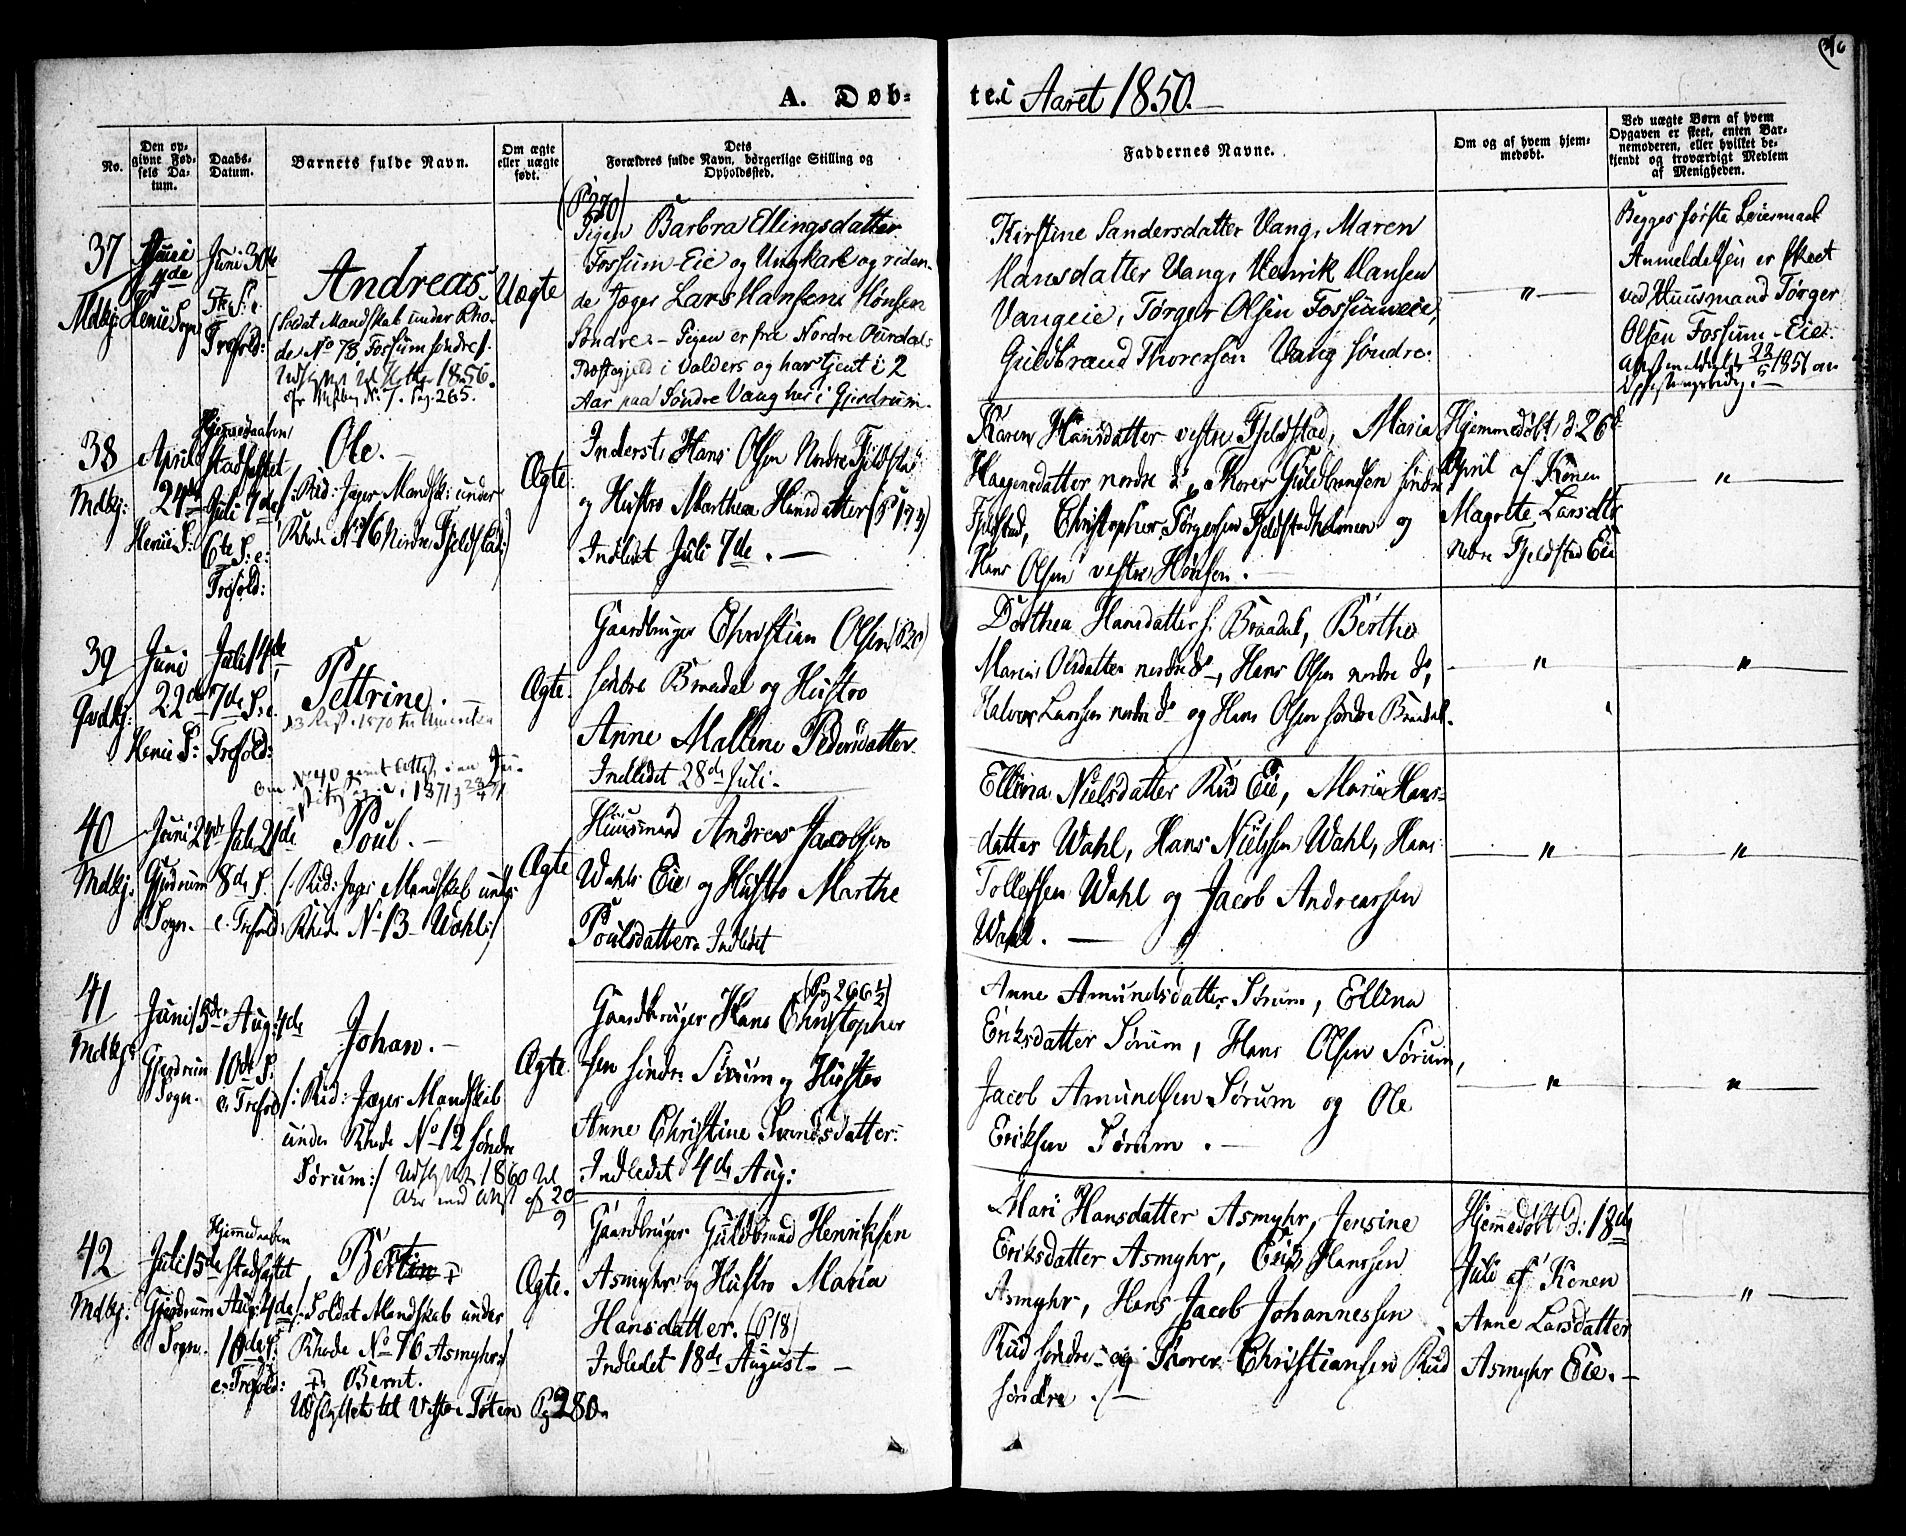 A. Døb-
te i Aaret 1850.
No.
Den op-
givne Fød-
sels Da-
tum.
Daabs-
Datum.
Barnets fulde Navn.
Om ægte
eller uægte
født.
Dets
Forældres fulde Navn, borgerlige Stilling og
Opholdssted.
Faddernes Navne.
Om og af hvem hjem-
medøbt.
Ved uægte Børn af hvem
Opgaven er skeet, enten Bar-
nemoderen, eller hvilket be-
kjendt og troværdigt Medlem
af Menigheden.
37
Mdkj:
Juni
4de
Henie Sogn
Juni 30te
5te S. e.
Trefold:
Andreas
/Soldat Mandskab under Rho-
de No 78 Fossum søndre/.
1856.
No 7. Pag. 265.
Uægte
(P 270)
Pigen Barbra Ellingsdatter
Fossum-Eie og Ungkarl og riden-
de Jæger Lars Hansen Hønsen
Søndre. - Pigen er fra Nordre Ourdals
Præstegjeld i Valders og har tjent i 2
Aar paa Søndre Vang her i Gjerdrum.
Kirstine Sandersdatter Vang, Maren
Hansdatter Vang, Henrik Hansen
Vangeie, Tørger Olsen Fossumeie,
Guldbrand Thoresen Vang søndre.
"
Begges første Leiermaal
Anmeldelsen er skeet
ved Huusmand Tørger
Olsen Fossum-Eie.
38
Mdkj:
April
24de
Henie S:
Hjemmedaaben
stadfæstet
Juli 7de
6te S. e.
Trefold:
Ole.
/: Rid: Jæger Mandsk: under
Rhode No 76 Nordre Fjeldstad:/
Ægte
Inderst Hans Olsen Nordre Fjeldstad
og Hustro Marthea Hansdatter
Indledet Juli 7de.
Karen Hansdatter vestre Fjeldstad, Maria
Haagensdatter nordre do, Thorer Guldbransen søndre
Fjeldstad, Christopher Tørgersen Fjeldstadholmen og
Hans Olsen vestre Hønsen.
Hjemmedøbt d: 26de
April af Konen
Magrete Larsdtr
nedre Fjeldstad Eie
"
39
Qvdkj:
Juni
22de
Henie S:
Juli 14de
7de S. e.
Trefold:
Pettrine.
Ægte.
Gaardbruger Christian Olsen (P 20)
søndre Braadal og Hustro
Anne Mallene Pedersdatter
Indledet 28de Juli.
Dorthea Hansdatter s. Braadal, Berthe
Maria Olsdatter nordre do, Hans Olsen nordre do,
Halvor Larsen nordre do og Hans Olsen søndre Braadal.
"
"
40
Mdkj:
Juni 24de
Gjerdrum
Sogn.
Juli 21de
8de S.
e. Trefold:
Poul.
/: Rid: Jæger Mandskab under
Rhode No 13 Wahl:/
Ægte
Huusmand Andreas Jacobsen
Wahls Eie og Hustro Marthe
Poulsdatter. Indledet
Ellina Nielsdatter Rud Eie, Maria Hans-
datter Wahl, Hans Nielsen Wahl, Hans
Tollefsen Wahl og Jacob Andreassen
Wahl.
"
"
41
Mdkj:
Juni 15de
Gjerdrum
Sogn.
Aug: 4de
10de S.
e. Trefold
Johan.
/: Rid: Jæger Mandskab
under Rhode No 12 søndre
Sørum:/
1860
Ægte.
(Pag 266 1/2)
Gaardbruger Hans Christopher
sen søndre Sørum og Hustro
Anne Christine Svendsdatter.
Indledet 4de Aug:
Anne Amundsdatter Sørum, Ellina
Eriksdatter Sørum, Hans Olsen Sørum,
Jacob Amundsen Sørum og Ole
Eriksen Sørum.
"
"
42
Mdkj:
Juli 15de
Gjerdrum
Sogn.
Hjemmedaaben
stadfæstet
Aug: 4de
10de S.
e. Trefold:
Bertin
/: Soldat Mandskab under
Rhode No 76 Asmyhr:/
Bernt.
Udflyttet til Vestre Toten Pag 280.
Ægte.
Gaardbruger Guldbrand Henriksen
Asmyhr og Hustro Maria
Hansdatter. (P 18)
Indledet 18de August.
Mari Hansdatter Asmyhr, Jensine
Eriksdatter Asmyhr, Erik Hanssen
Asmyhr, Hans Jacob Johannessen
Rud søndre og Thorer Christiansen Rud
søndre.
Hjemmedøbt d: 18de
Juli af Konen
Anne Larsdatter
Asmyhr Eie.
"